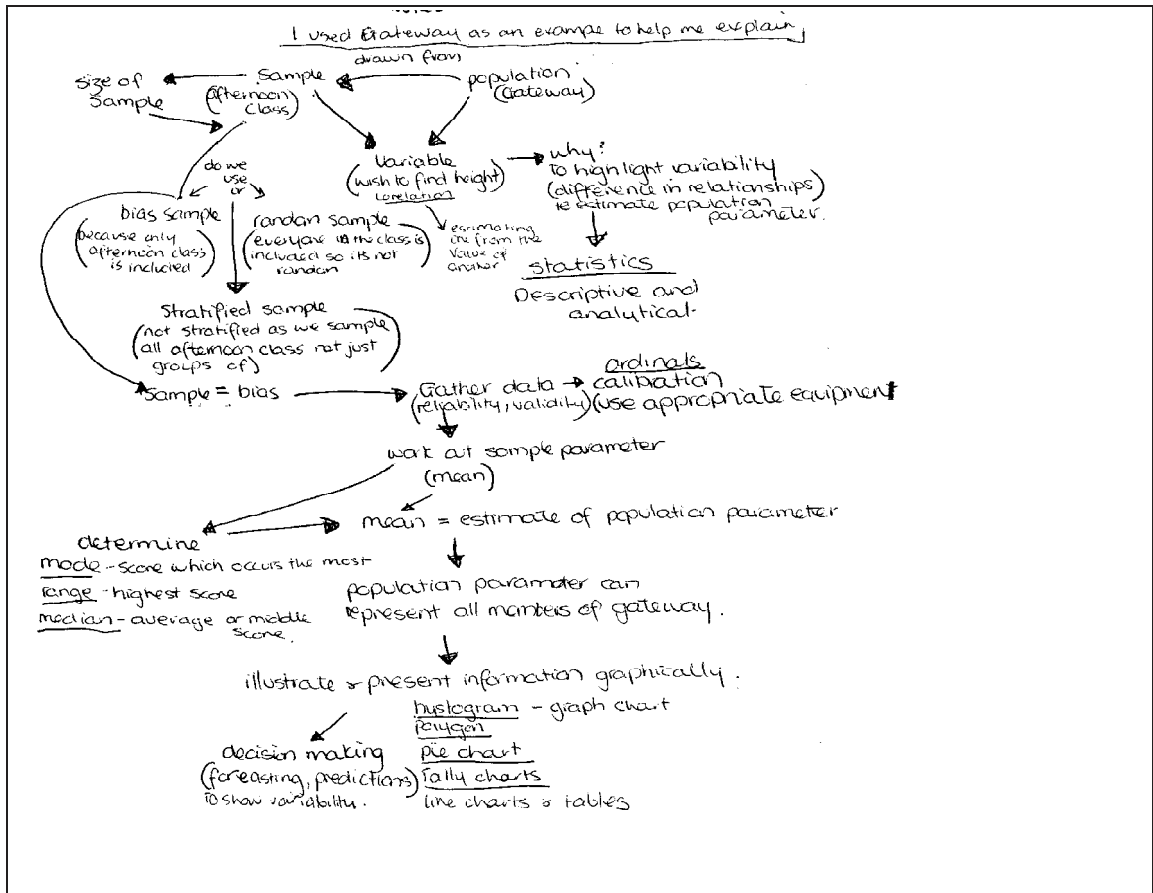 I used Gateway as an example to help me explain
drawn from
size of
sample
sample
(afternoon
class)
population
(Gateway)
do we
use
or
Variable
(wish to find height)
corelation
why?
to highlight variability
(difference in relationships)
to estimate population
parameter.
bias sample
(because only
afternoon class
is included)
randan sample
(everyone in the class is
included so its not
random)
estimating
one from the
value of
another
statistics
Descriptive and
analytical.
Stratified sample
(not stratified as we sample
all afternoon class not just
groups of)
Sample = bias
Gather data
(reliability, validity)
ordinals
calibration
(use appropriate equipment
work out sample parameter
(mean)
mean = estimate of population parameter
determine
mode - score which occurs the most
range - highest score
median - average or middle
score.
population parameter can
represent all members of gateway.
illustrate & present information graphically.
hystogram - graph chart
polygen
pie chart
Tally charts
line charts & tables
decision making
(foreasting, predictions)
To show variability.